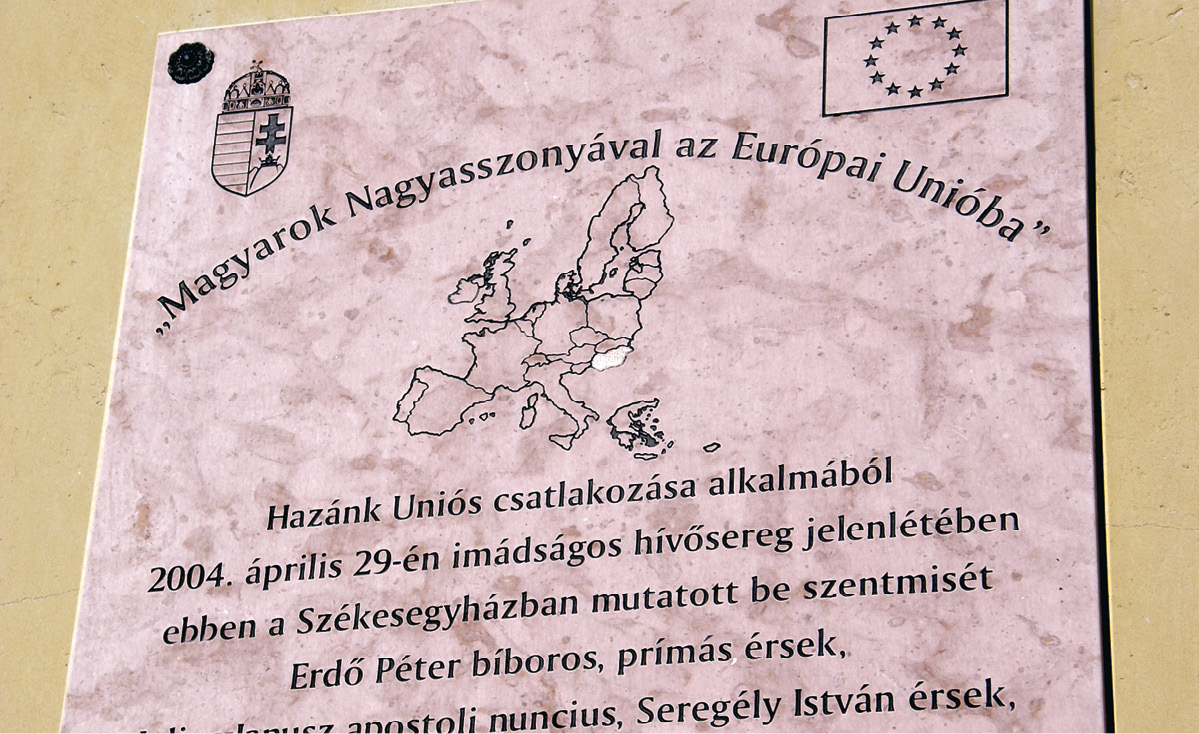 „Magyarok Nagyasszonyával az Európai Unióba”
Hazánk Uniós csatlakozása alkalmából
2004. április 29-én imádságos hívősereg jelenlétében
ebben a Székesegyházban mutatott be szentmisét
Erdő Péter bíboros, prímás érsek,
apostoli nuncius, Seregély István érsek,